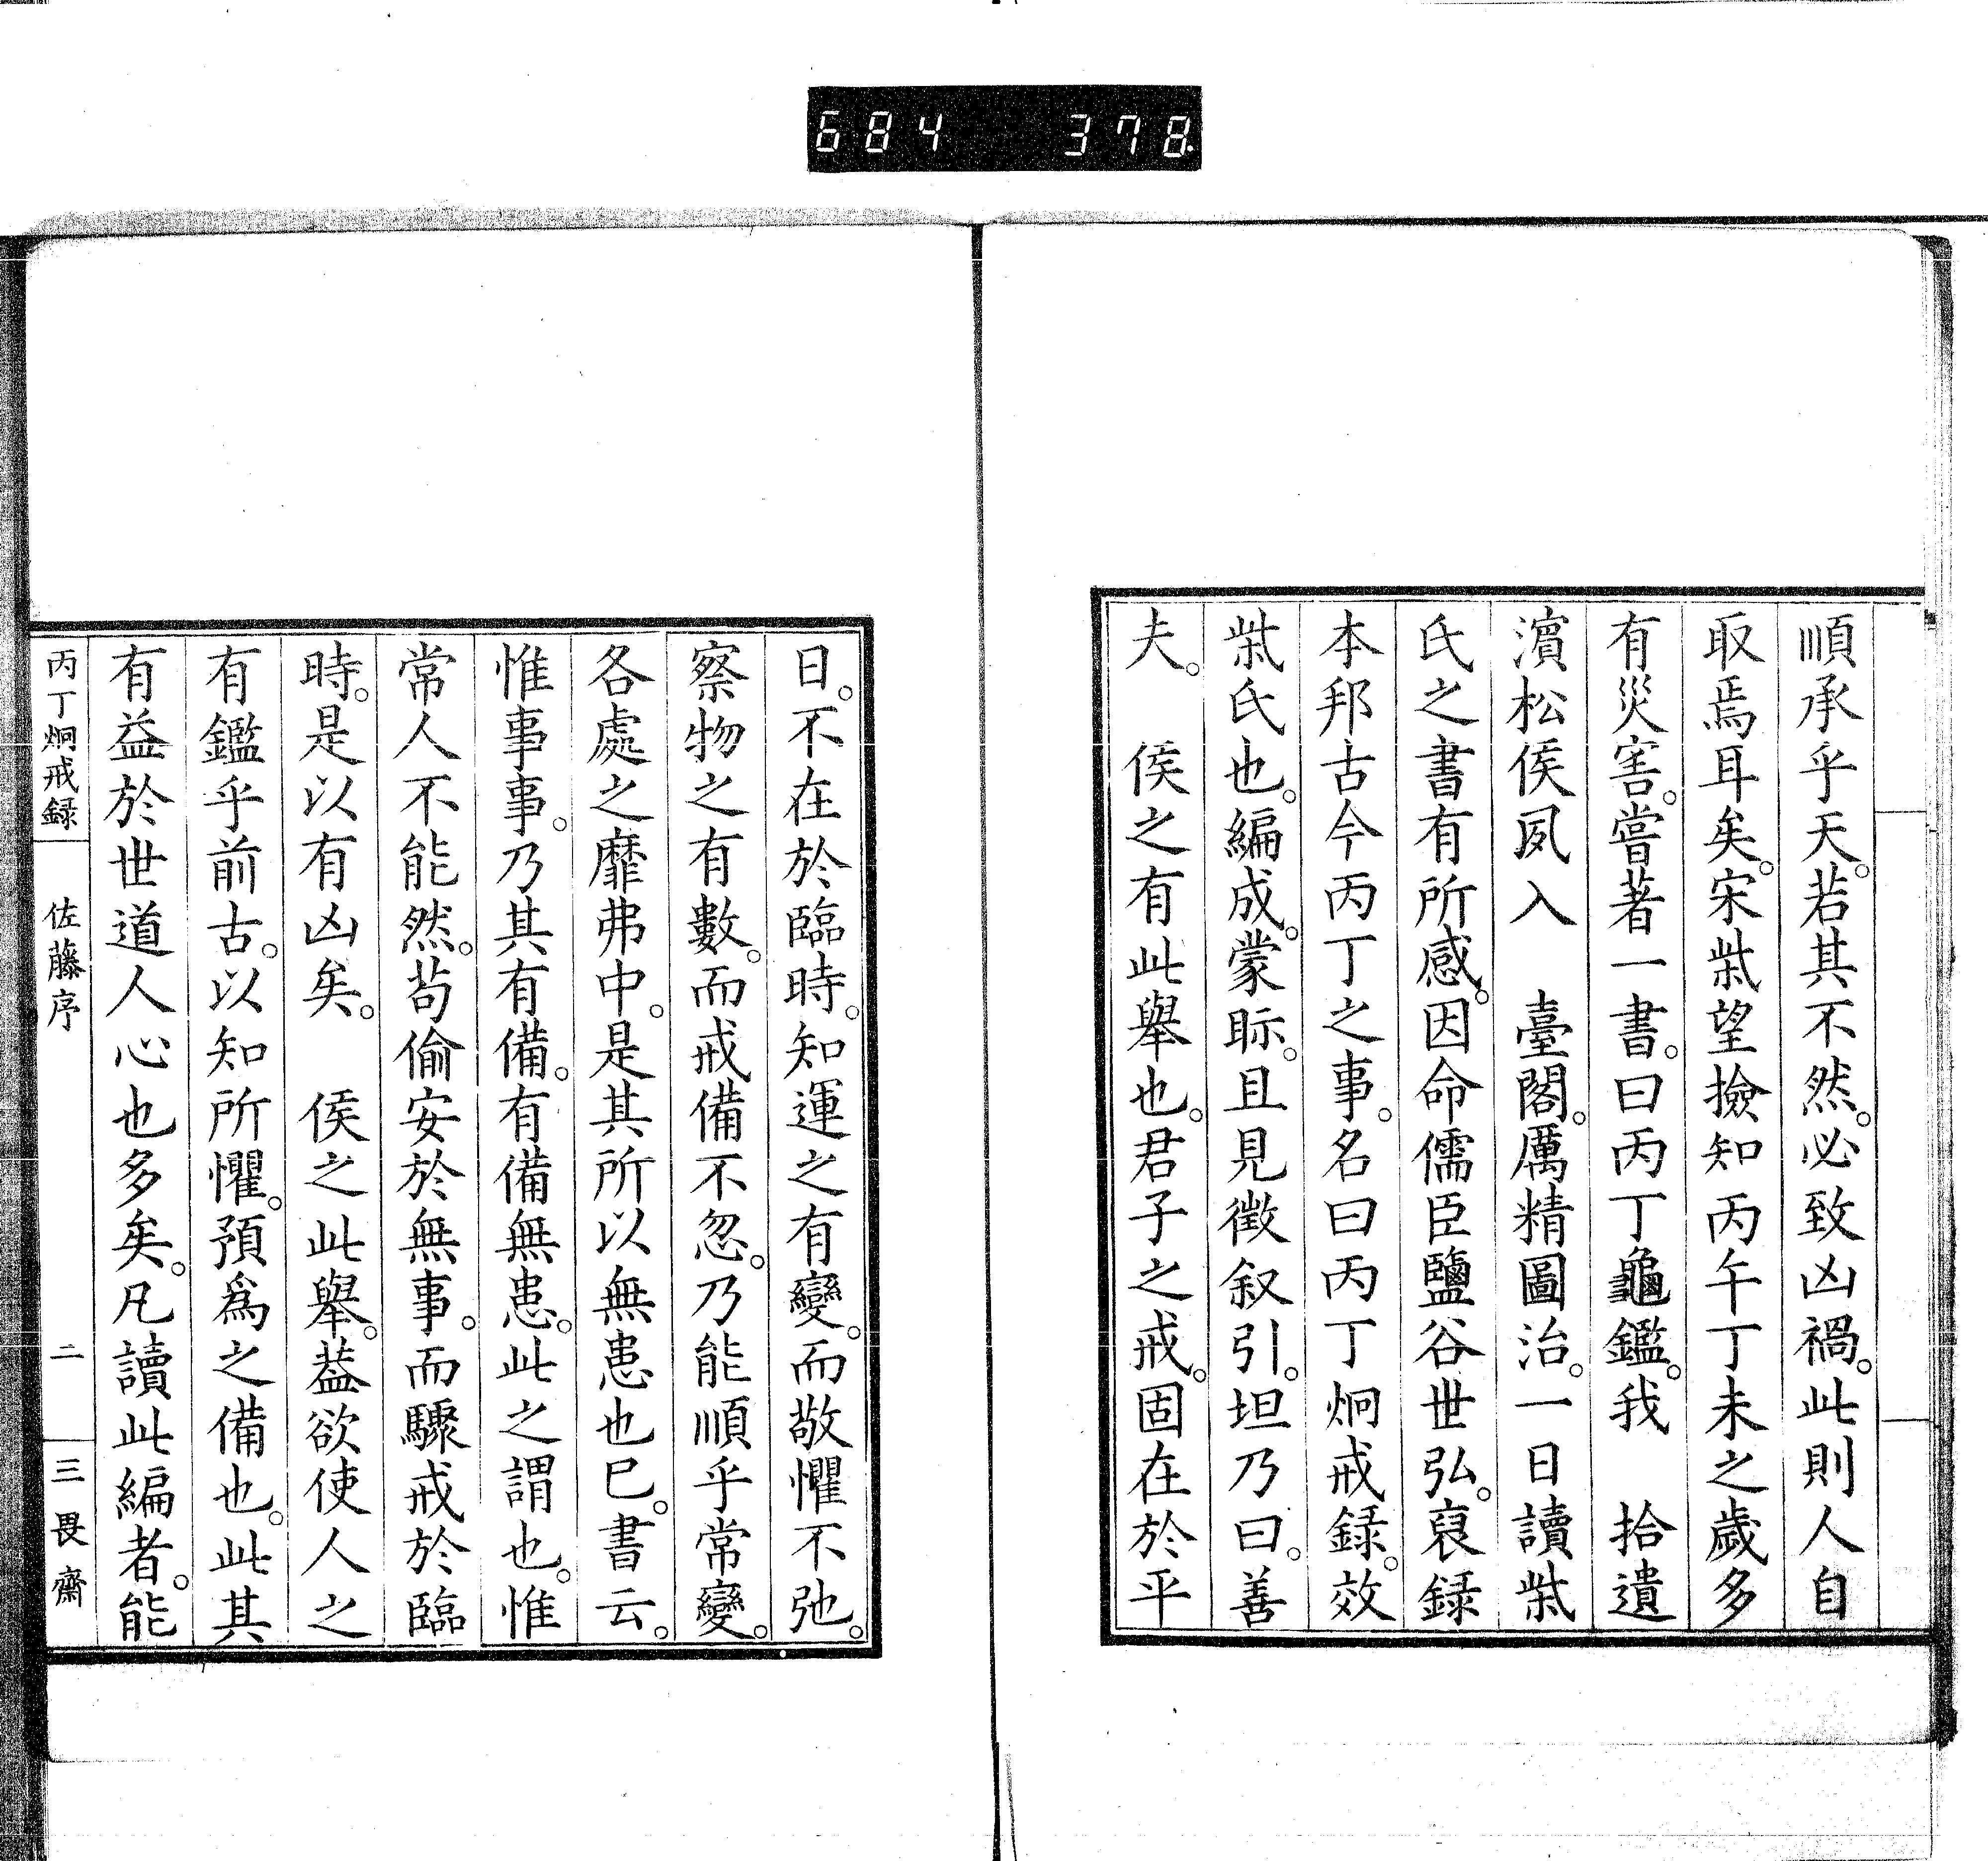 684 378
順承乎天。若其不然。必致凶禍。此則人自
取焉耳矣。宋柴望撿知丙午丁未之歲多
有災害。嘗著一書。曰丙丁龜鑑。我　拾遺
濵松侯夙入　臺閣。厲精圖治。一日讀柴
氏之書有所感。因命儒臣鹽谷世弘。裒録
本邦古今丙丁之事。名曰丙丁炯戒録。效
柴氏也。編成。蒙眎。且見徵叙引。坦乃曰。善
夫。　侯之有此舉也。君子之戒。固在於平
日。不在於臨時。知運之有變。而敬懼不弛。
察物之有數。而戒備不忽。乃能順乎常變。
各處之靡弗中。是其所以無患也已。書云。
惟事事。乃其有備。有備無患。此之謂也。惟
常人不能然。苟偷安於無事。而驟戒於臨
時。是以有凶矣。　侯之此舉。葢欲使人之
有鑑乎前古。以知所懼。預爲之備也。此其
有益於世道人心也多矣。凡讀此編者。能
丙丁炯戒録　佐藤序　二　三畏齋